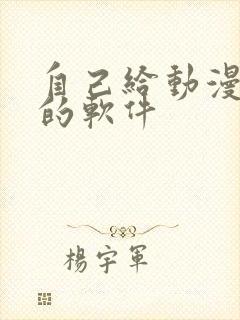 自己給動漫
的軟件
楊宇軍